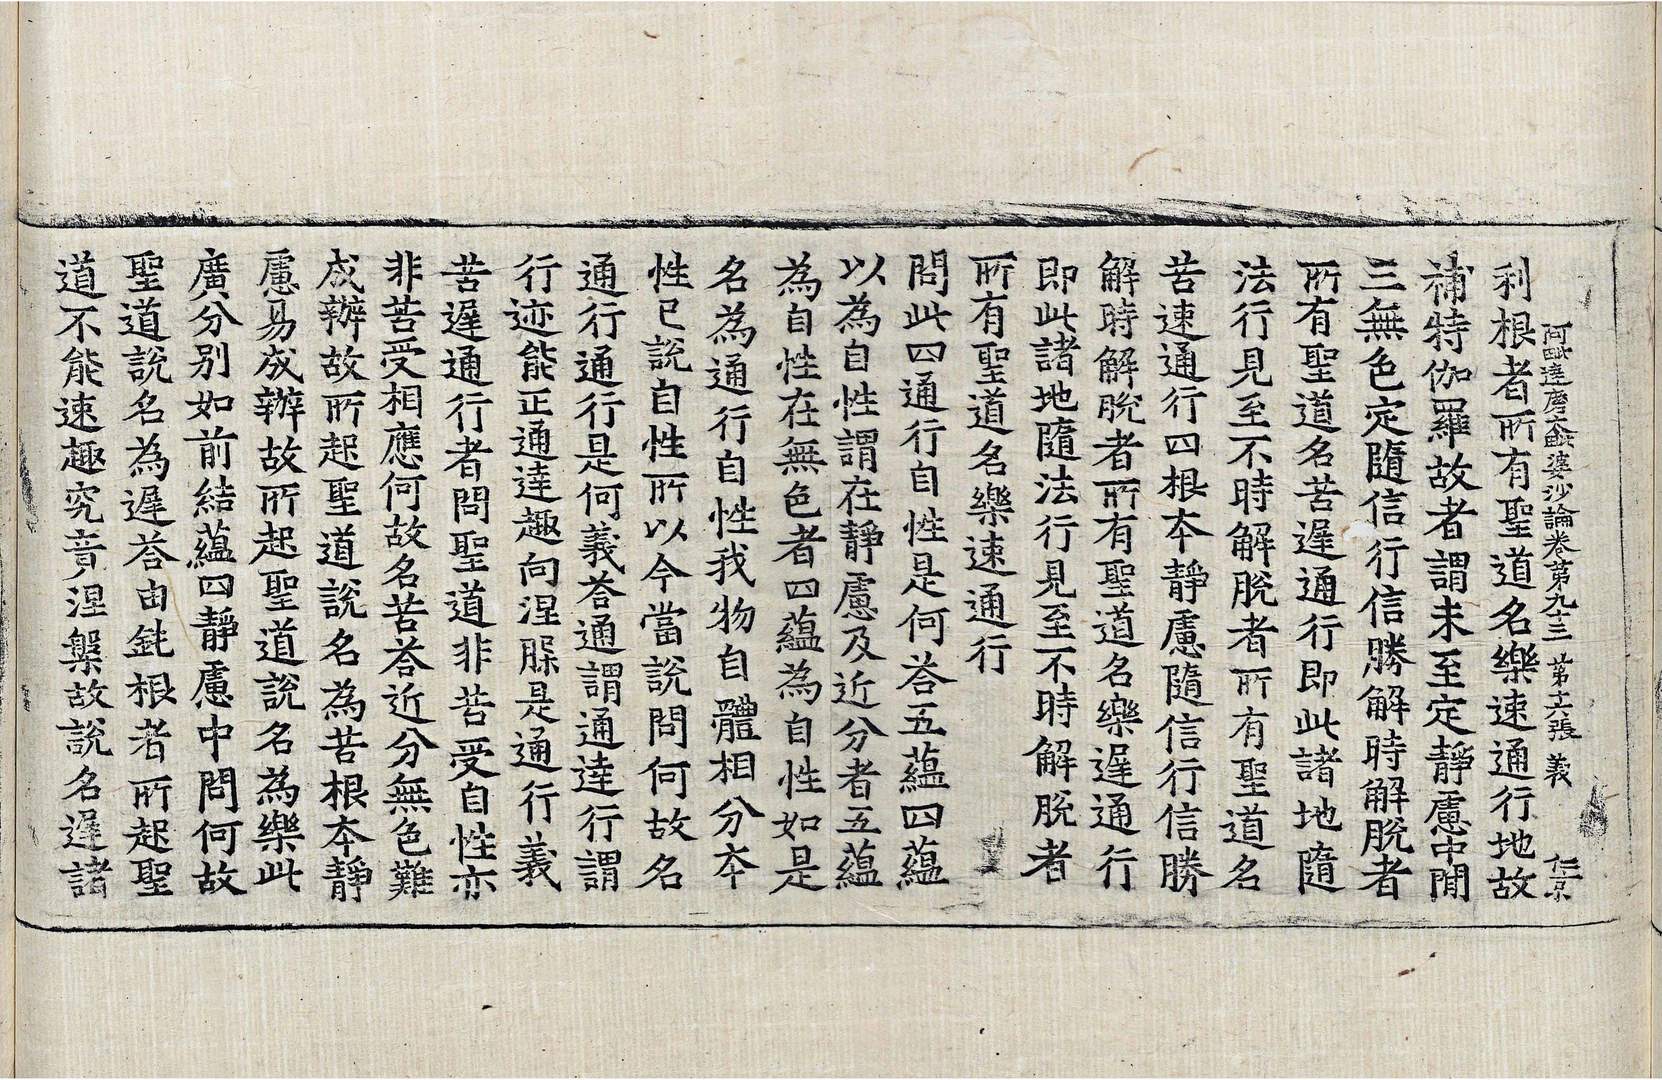 阿毗達磨大毗婆沙論卷第九十三 第十六張 義 仁京
利根者所有聖道名樂速通行地故
補特伽羅故者謂未至定靜慮中閒
三無色定隨信行信勝解時解脫者
所有聖道名苦遲通行即此諸地隨
法行見至不時解脫者所有聖道名
苦速通行四根本靜慮隨信行信勝
解時解脫者所有聖道名樂遲通行
即此諸地隨法行見至不時解脫者
所有聖道名樂速通行
問此四通行自性是何荅五蘊四蘊
以為自性謂在靜慮及近分者五蘊
為自性在無色者四蘊為自性如是
名為通行自性我物自體相分本
性已說自性所以今當說問何故名
通行通行是何義荅通謂通達行謂
行迹能正通達趣向涅槃是通行義
苦遲通行者問聖道非苦受自性亦
非苦受相應何故名苦荅近分無色難
成辦故所起聖道說名為苦根本靜
慮易成辦故所起聖道說名為樂此
廣分别如前結蘊四靜慮中問何故
聖道說名為遲荅由鈍根者所起聖
道不能速趣究竟涅槃故說名遲諸